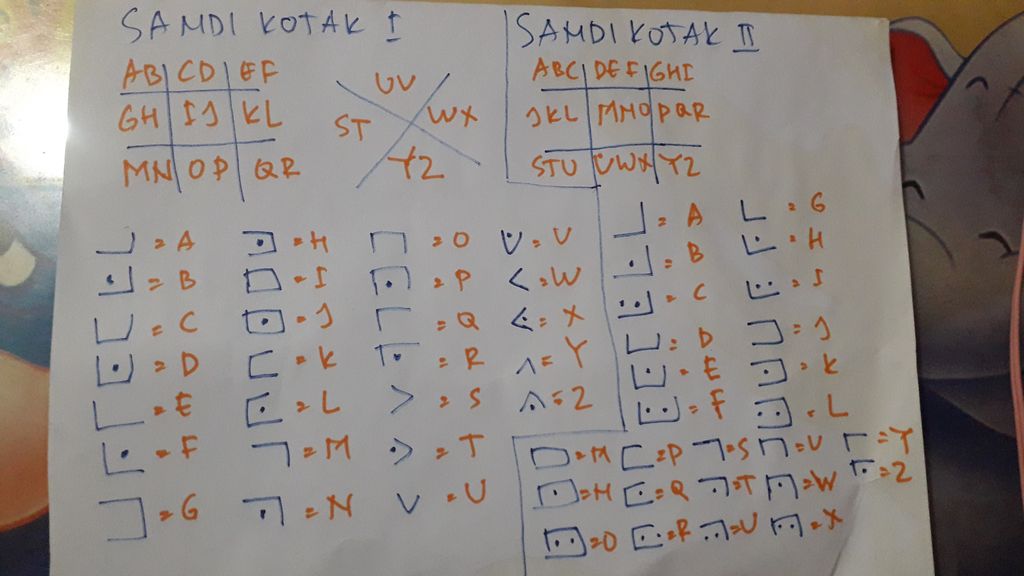 SANDI KOTAK I
AB CD EF
GH IJ KL
MN OP QR
UV
ST WX
YZ
= A = H = O = V
= B = I = P = W
= C = J = Q = X
= D = K = R = Y
= E = L = S = Z
= F = M = T
= G = N = U
SANDI KOTAK II
ABC DEF GHI
JKL MNO PQR
STU VWX YZ
= A = G
= B = H
= C = I
= D = J
= E = K
= F = L
= M = P = S = V = Y
= N = Q = T = W = Z
= O = R = U = X